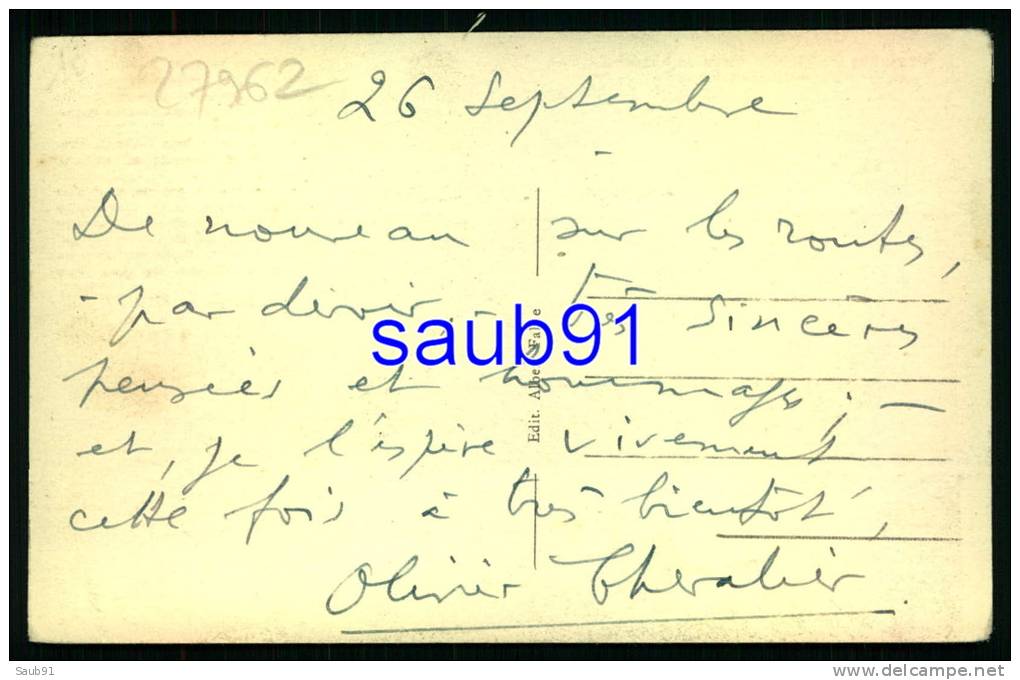 27962
26 Septembre
De nouveau sur les routes,
- par devoir. - Très sincères
saub91
pensées et hommages ; -
et, je l'espère vivement
cette fois à très bientôt,
Olivier Chevalier.
Edit. Albe
Saub91
www.delcampe.net